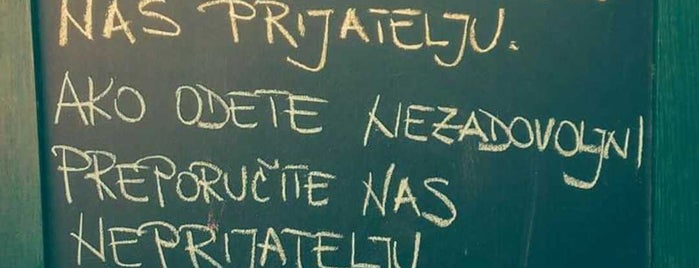 NAS PRIJATELJU.
AKO ODETE NEZADOVOLJNI
PREPORUČITE NAS
NEPRIJATELJU